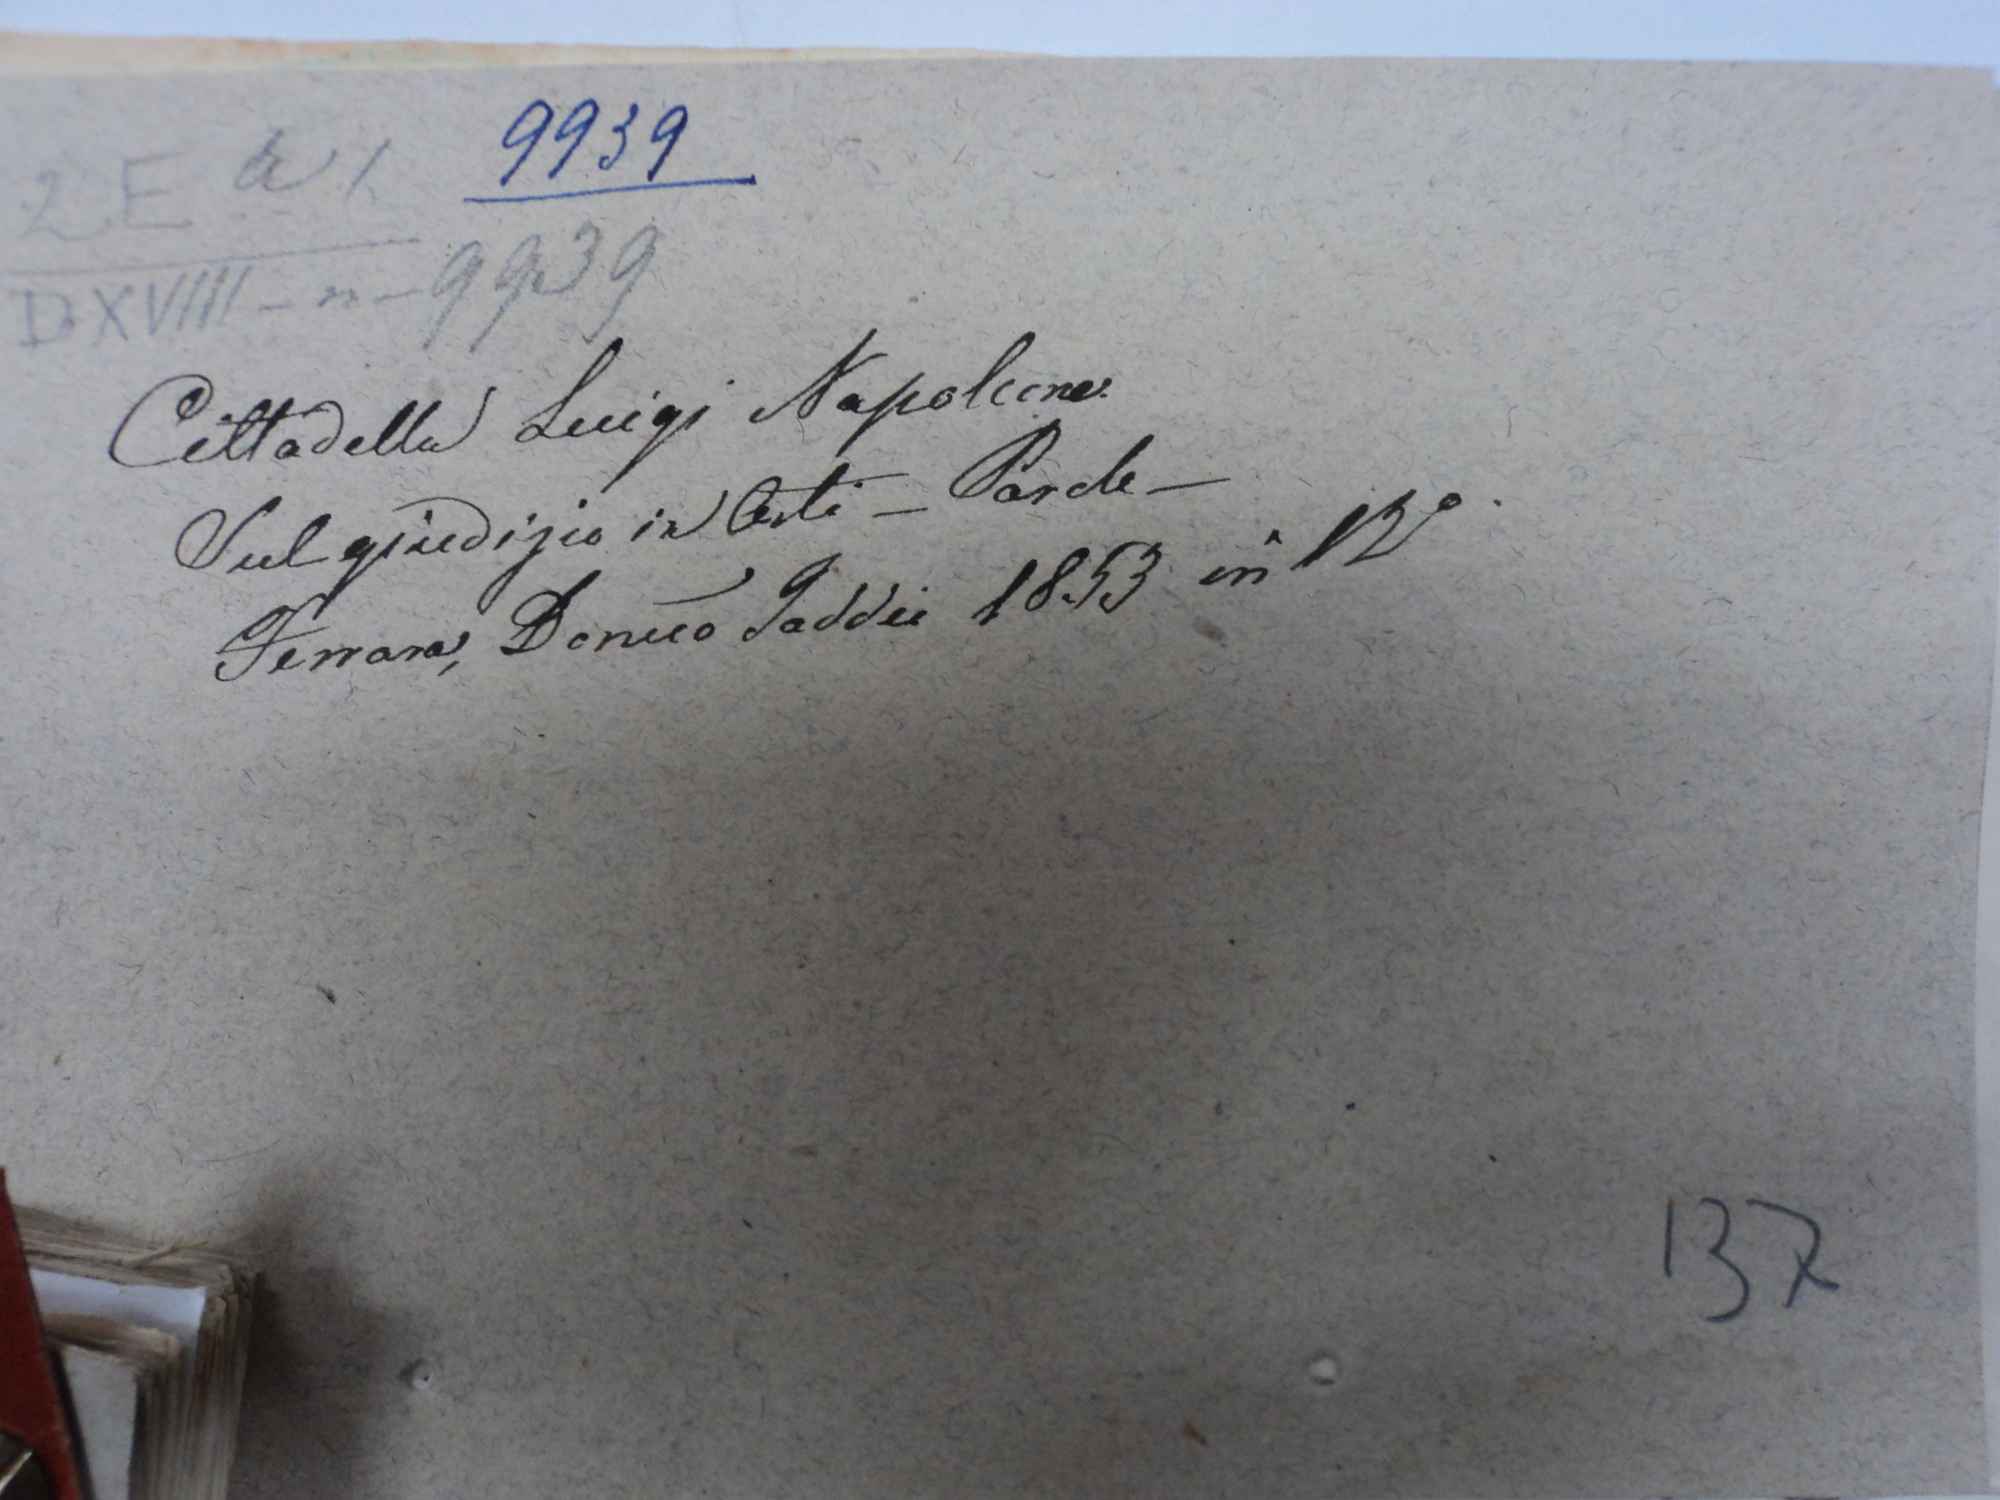 9939
2 E a 1
D.XVIII - n - 9939
Cittadella Luigi Napoleone
Sul giudizio in Arti - Parole -
Ferrara, Domco Taddei 1853 in 12º.
137